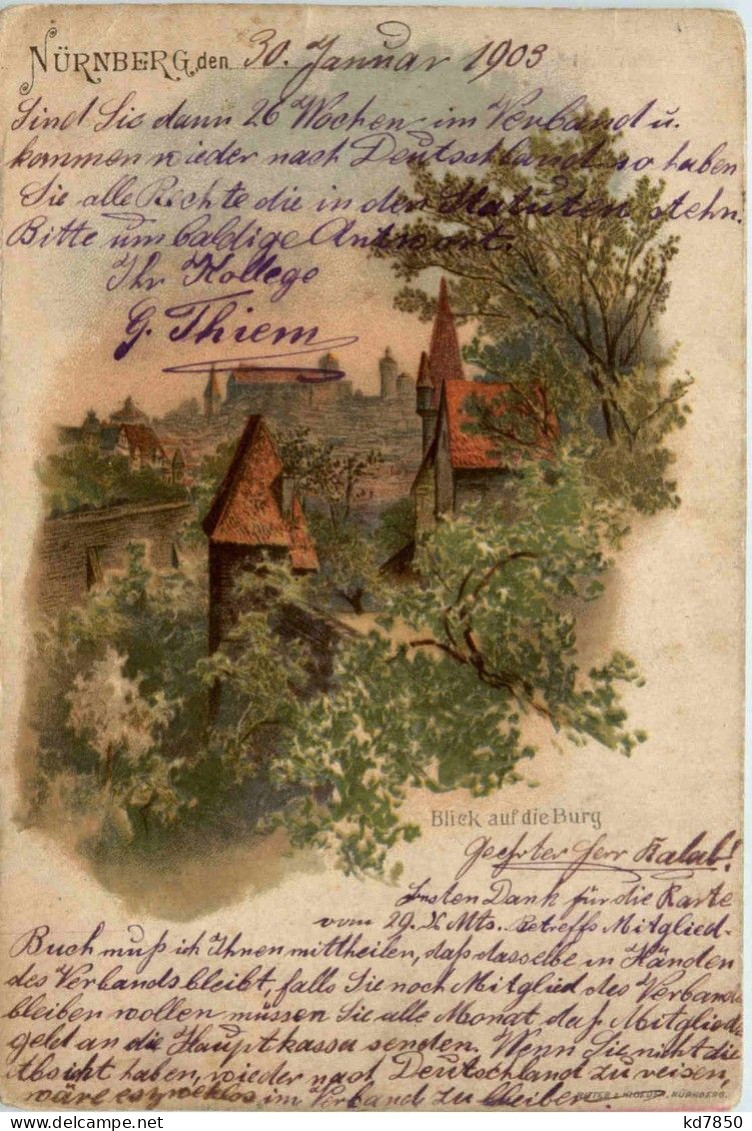 NÜRNBERG, den 30. Januar 1903
Sind Sie dann 26 Wochen im Verband u.
kommen wieder nach Deutschland so haben
Sie alle Rechte die in den Statuten stehn.
Bitte um baldige Antwort.
Ihr Kollege
G. Thiem
Blick auf die Burg
Geehrter Herr Kalab!
Besten Dank für die Karte
vom 29. Mts. Betreffs Mitglied-
Buch muß ich Ihnen mittheilen, daß dasselbe in Händen
des Verbands bleibt, falls Sie noch Mitglied des Verbands
bleiben wollen müssen Sie alle Monat das Mitglieds
geld an die Hauptkassa senden. Wenn Sie nicht die
Absicht haben, wieder nach Deutschland zu reisen,
wäre es zweklos im Verband zu bleiben.
NÜRNBERG.
kd7850